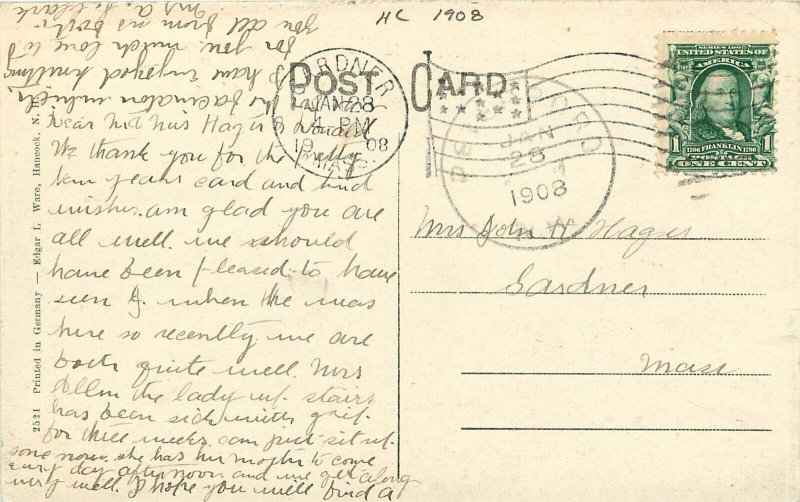 HC 1908
POST CARD
GARDNER
JAN 28
4 PM
19 08
MASS.
BEDFORD
JAN
28
1908
SERIES 1902
UNITED STATES OF
AMERICA
1706 FRANKLIN 1790
POSTAGE
1 ONE CENT 1
2521 Printed in Germany — Edgar L. Ware, Hancock, N. H.
Dear Mrs Hager
We thank you for the pretty
New years card and kind
wishes. am glad you are
all well. we should
have been pleased to have
seen J. when he was
here so recently. we are
both quite well. Mrs
Allen the lady up stairs
has been sick with grip
for three weeks. can just sit up
some now. she has her mother to come
every day afternoon and we get along
very well. I hope you will find a
use for the
I have enjoyed knitting
for you. much love to
you all from us both.
Mrs A. J. Clark
Mrs John H. Hager
Gardner
Mass